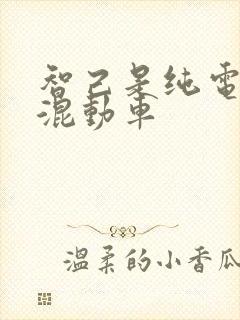 智己是纯电
混動車
温柔的小香瓜